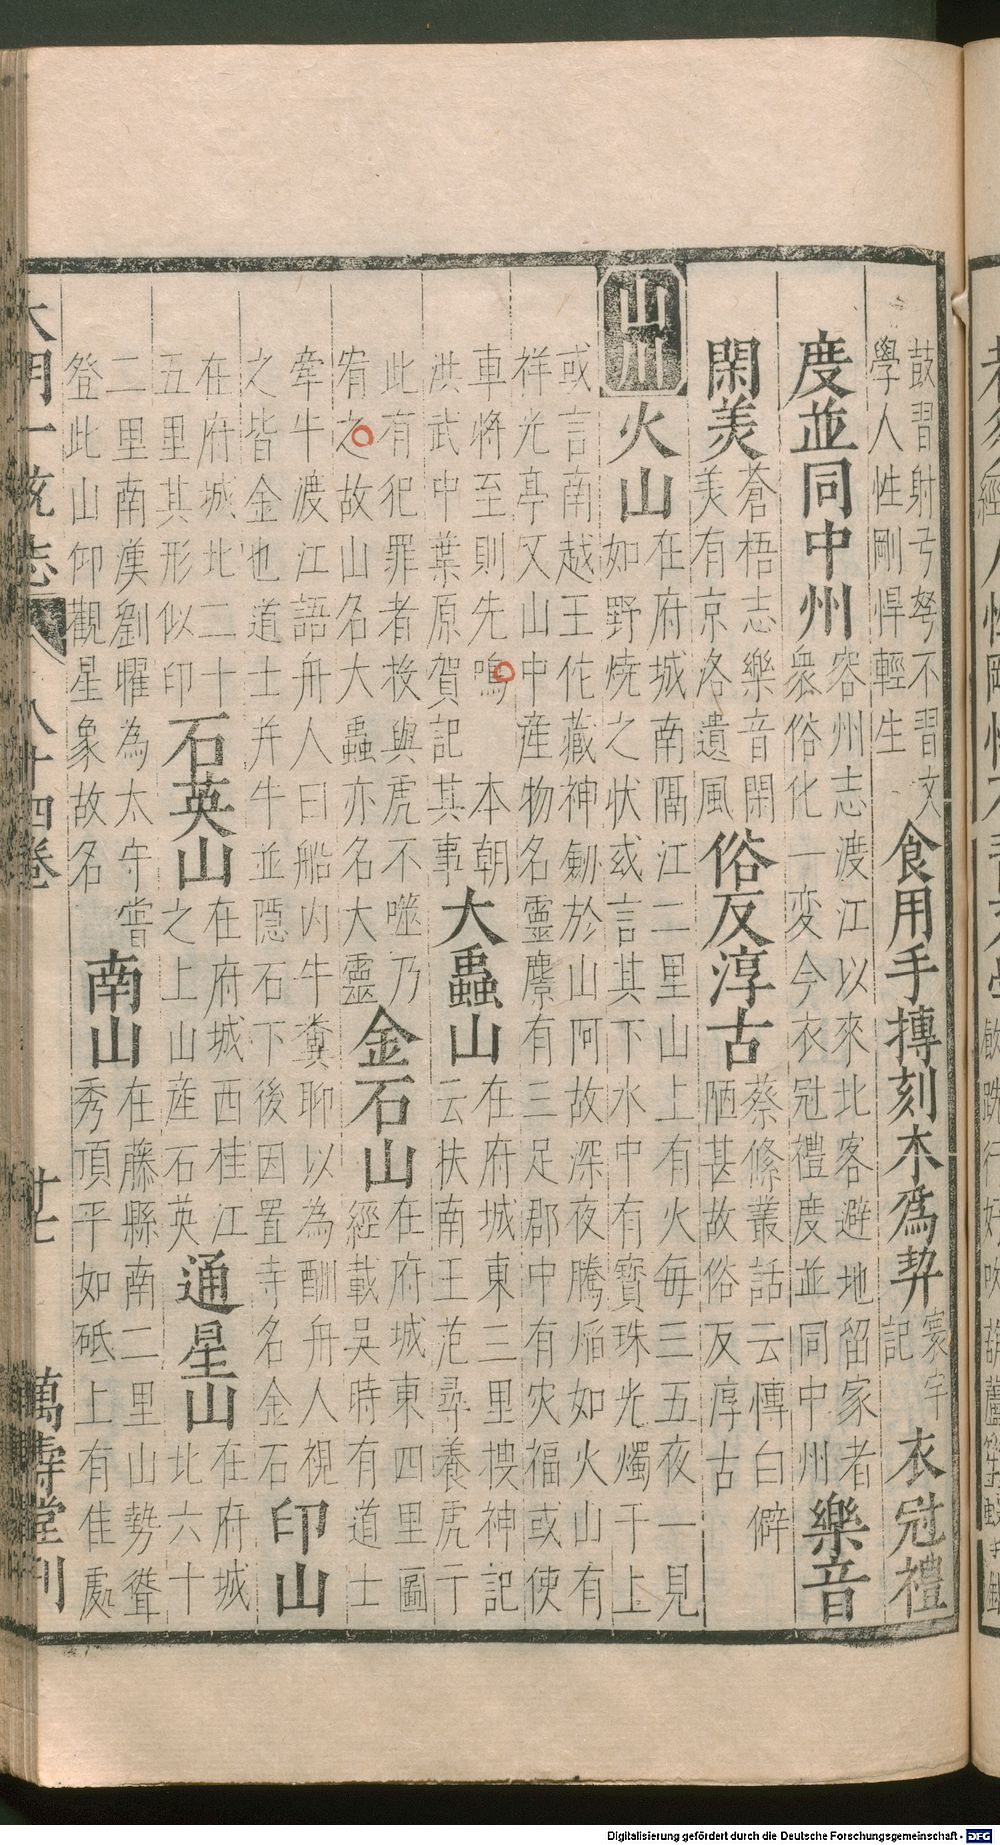 鼓習射弓弩不習文學人性剛悍輕生食用手摶刻木爲契寰宇記衣冠禮
度並同中州容州志渡江以來北客避地留家者衆俗化一變今衣冠禮度並同中州樂音
閑美蒼梧志樂音閑美有京洛遺風俗反淳古蔡絛叢話云傳白僻陋甚故俗反淳古
山川火山在府城南隔江二里山上有火每三五夜一見如野燒之状或言其下水中有寳珠光燭于上
或言南越王佗藏神劒於山阿故深夜騰焔如火山有祥光亭又山中産物名靈麖有三足郡中有灾福或使
車將至則先鳴 本朝洪武中葉原賀記其事大蟲山在府城東三里搜神記云扶南王范尋養虎于
此有犯罪者投與虎不噬乃宥之故山名大蟲亦名大靈金石山在府城東四里圖經載吳時有道士
牽牛渡江語舟人曰船内牛糞聊以為酬舟人視之皆金也道士并牛並隱石下後因置寺名金石印山
在府城北二十五里其形似印石英山在府城西桂江之上山産石英通星山在府城北六十
二里南漢劉曜為太守嘗登此山仰觀星象故名南山在藤縣南二里山勢聳秀頂平如砥上有佳處
大明一統志 八十四卷 廿七 萬壽堂刊
Digitalisierung gefördert durch die Deutsche Forschungsgemeinschaft - DFG